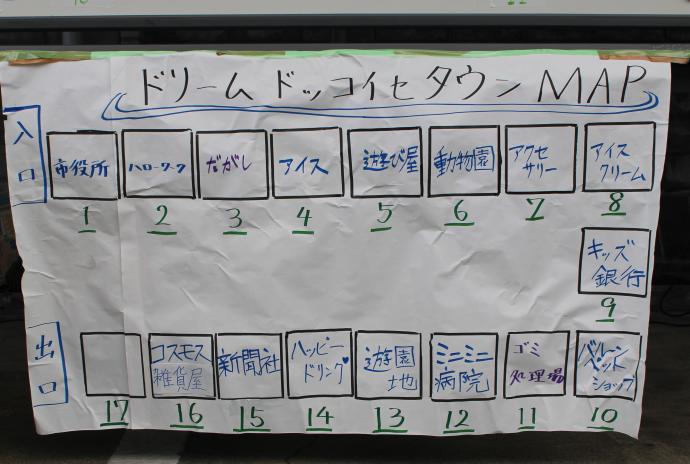 ドリームドッコイセタウンMAP
入口
市役所
1
ハローワーク
2
だがし
3
アイス
4
遊び屋
5
動物園
6
アクセ
サリー
7
アイス
クリーム
8
キッズ
銀行
9
出口
17
コスモス
雑貨屋
16
新聞社
15
ハッピー
ドリンク
14
遊園
地
13
ミニミニ
病院
12
ゴミ
処理場
11
バルーン
ペット
ショップ
10